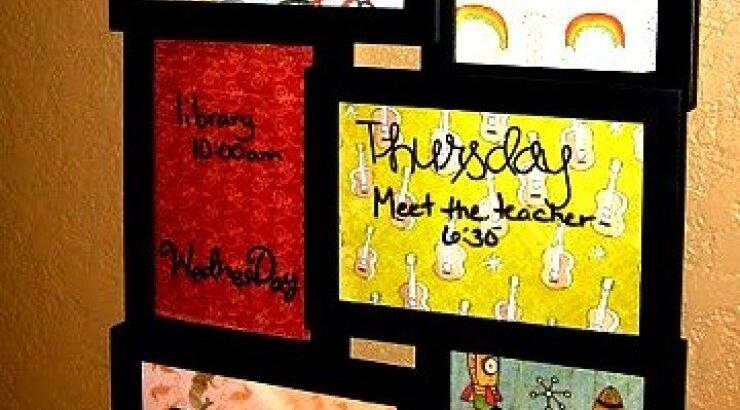 library
10:00am
WednesDay
Thursday
Meet the teacher
6:30